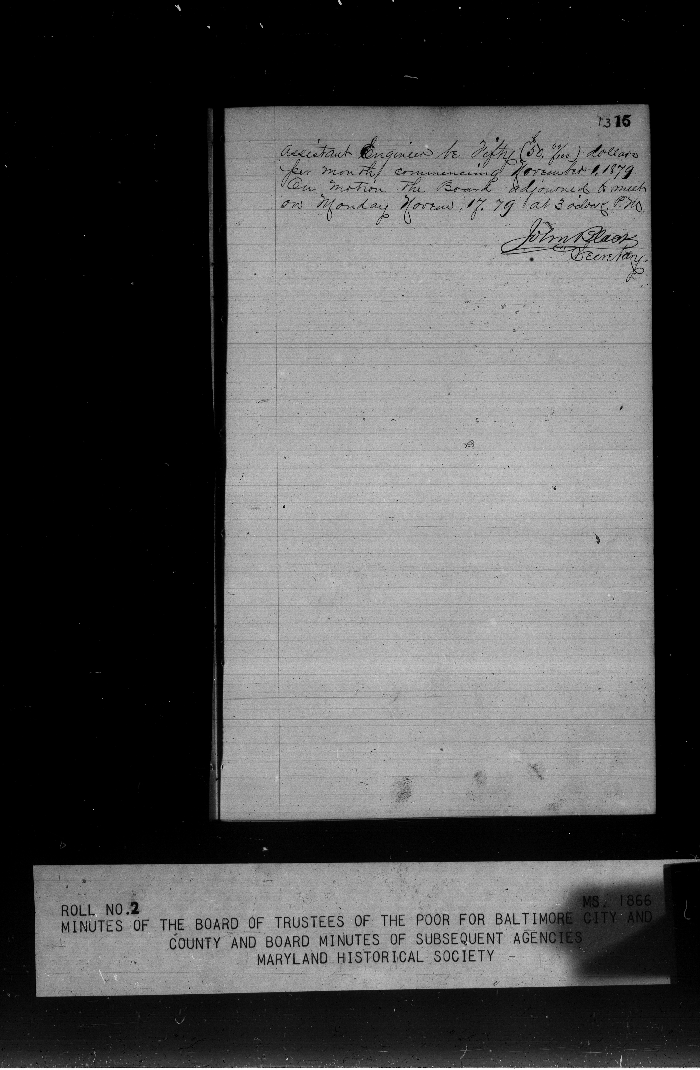 1315
assistant Engineer be Fifty ($50. 00/100) dollars
per month commencing November 1, 1879
On motion the Board adjourned to meet
on Monday Novem. 17. 79 at 3 oclock P.M.
John Black
Secretary.
ROLL NO.2 MS. 1866
MINUTES OF THE BOARD OF TRUSTEES OF THE POOR FOR BALTIMORE CITY AND
COUNTY AND BOARD MINUTES OF SUBSEQUENT AGENCIES
MARYLAND HISTORICAL SOCIETY